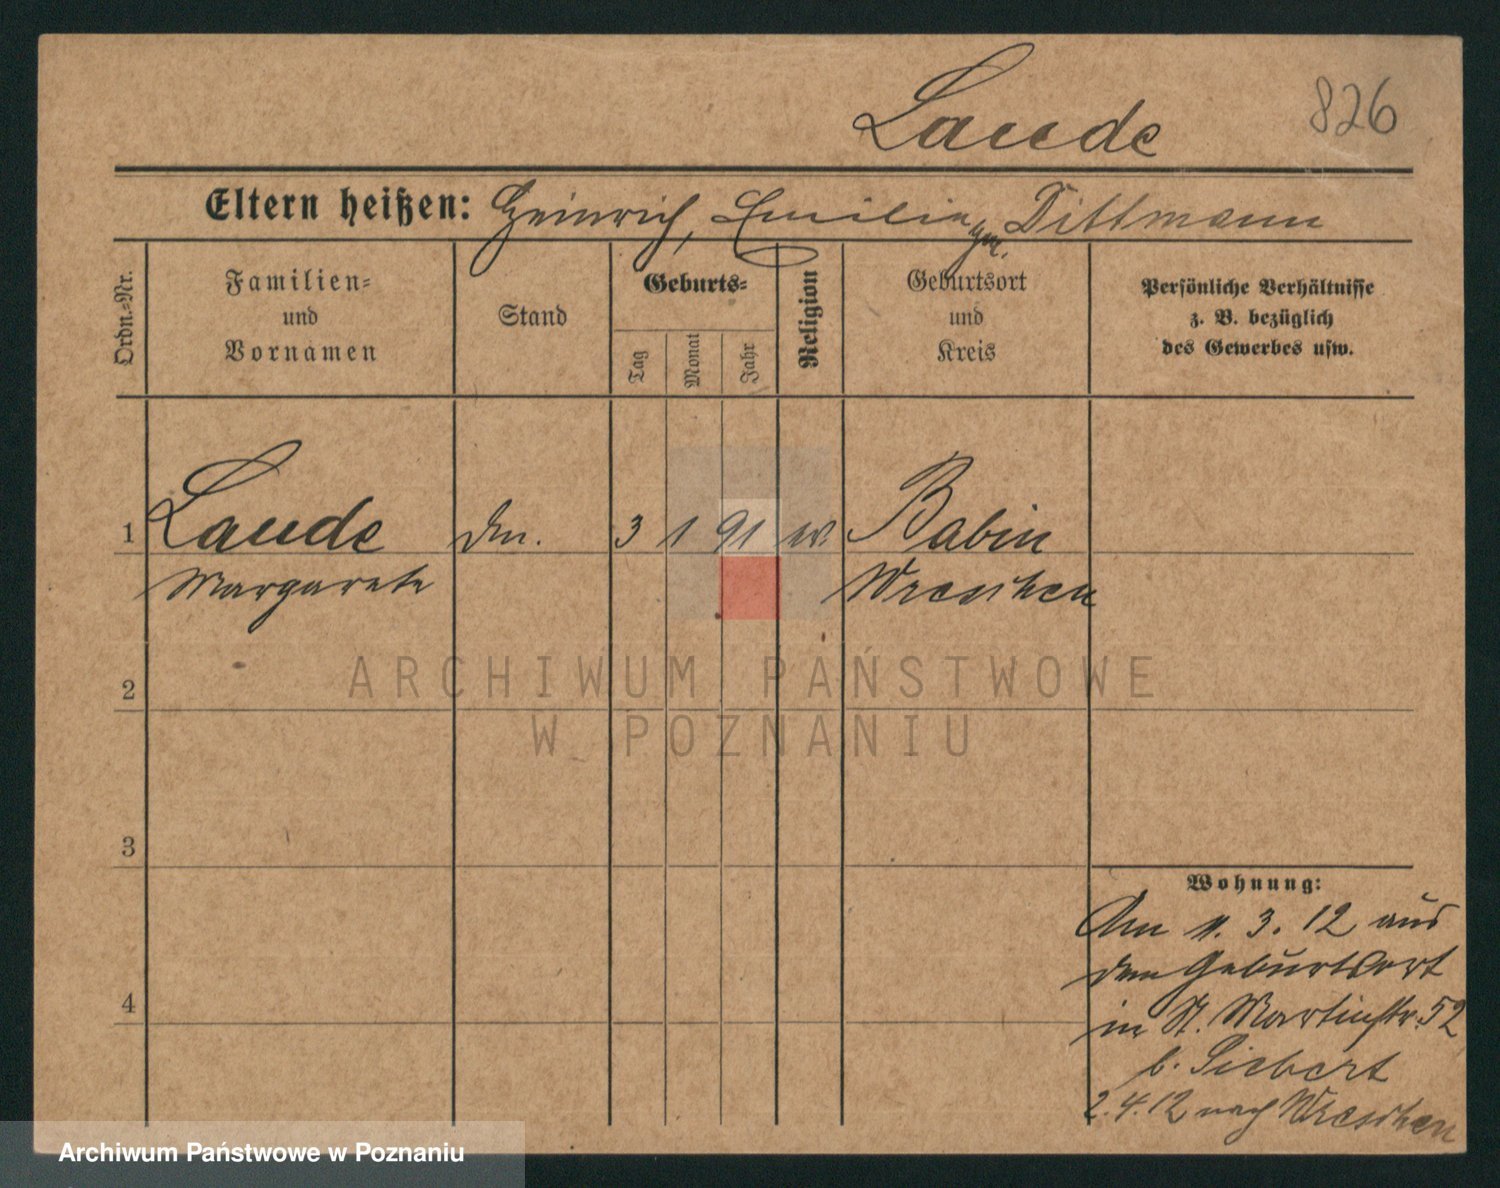 Laude
826
Eltern heißen: Heinrich, Emilie geb. Dittmann
Ordn.-Nr.
Familien-
und
Vornamen
Stand
Geburts-
Tag
Monat
Jahr
Religion
Geburtsort
und
Kreis
Persönliche Verhältnisse
z. B. bezüglich
des Gewerbes usw.
1 Laude 3 1 91 Babin
Margarete Wreschen
2
3
4
Wohnung:
Am 11. 3. 12 aus
dem Geburtsort
in St. Martinstr. 52
b. Siebert
2. 4. 12 nach Wreschen
ARCHIWUM PAŃSTWOWE
W POZNANIU
Archiwum Państwowe w Poznaniu